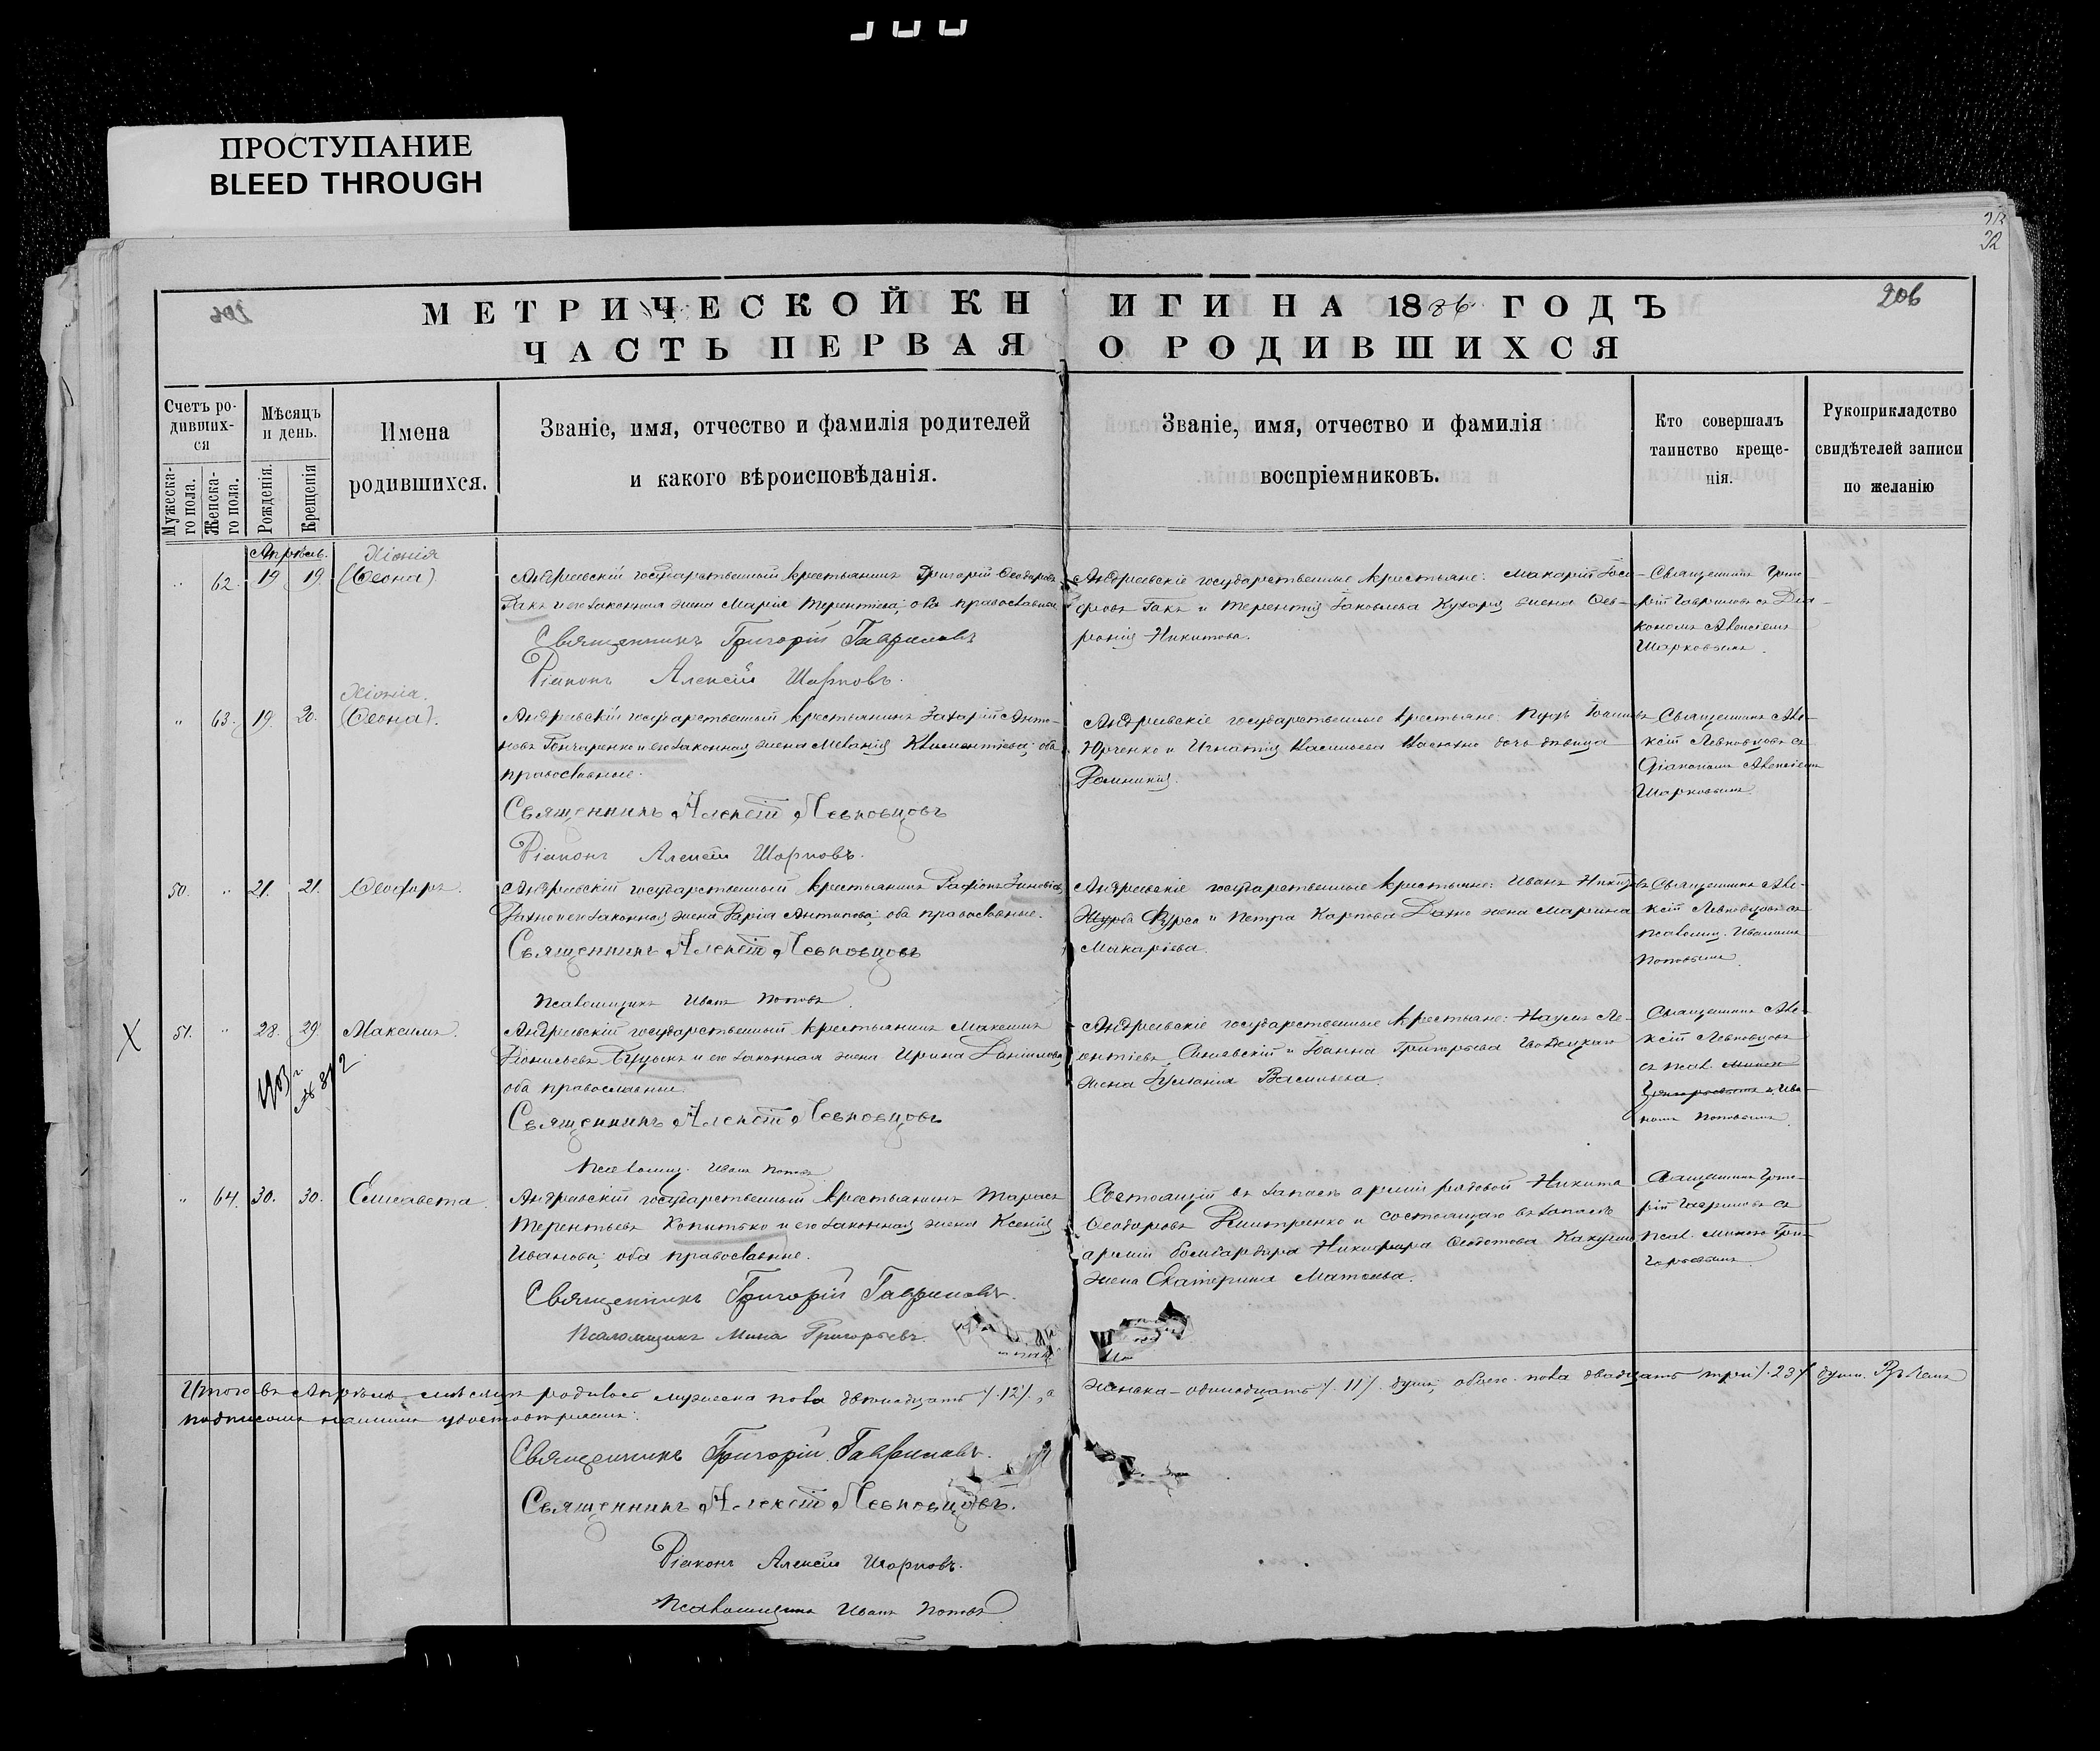 ПРОСТУПАНИЕ
BLEED THROUGH
32
МЕТРИЧЕСКОЙ КНИГИ НА 1886 ГОДЪ
206
ЧАСТЬ ПЕРВАЯ О РОДИВШИХСЯ
Счетъ ро-
дивших-
ся
Мужеска-
го пола.
Женска-
го пола.
Мѣсяцъ
и день.
Рожденія.
Крещенія
Имена
родившихся.
Званіе, имя, отчество и фамилія родителей
и какого вѣроисповѣданія.
Званіе, имя, отчество и фамилія
воспріемниковъ.
Кто совершалъ
таинство креще-
нія.
Рукоприкладство
свидѣтелей записи
по желанію
Апрѣль.
Хіонія
62. 19 19. (Ѳеона)
Андреевскій государственный крестьянинъ Григорій Ѳеодоровъ
Гакъ и его законная жена Марія Терентіева; оба православные
Священникъ Григорій Гавриловъ
Діаконъ Алексій Шарковъ.
Андреевскіе государственные крестьяне: Макарій Іоси-
фовъ Гакъ и Терентія Іаковлева Кухаря жена Фев-
ронія Никитова.
Священникъ Григо-
рій Гавриловъ съ Діа-
кономъ Алексіемъ
Шарковымъ.
Хіонія.
63. 19. 20. (Ѳеона).
Андреевскій государственный крестьянинъ Захарій Анто-
новъ Гончаренко и его законная жена Меланія Климентіева; оба
православные.
Священникъ Алексій Левковцовъ
Діаконъ Алексій Шарковъ.
Андреевскіе государственные крестьяне:
Юрченко и Игнатія Васильева дочь дѣвица
Домникія.
Священникъ Але-
ксій Левковцовъ съ
Діакономъ Алексіемъ
Шарковымъ
50. 21. 21. Ѳеофилъ.
Андреевскій государственный крестьянинъ
и его законная жена Дарія Антипова; оба православные.
Священникъ Алексій Левковцовъ
Псаломщикъ Иванъ Поповъ.
Андреевскіе государственные крестьяне: Иванъ
Фурса и Петра Карпова жена Марина
Макаріева.
Священникъ Але-
ксій Левковцовъ съ
псаломщ. Иваномъ
Поповымъ.
51. 28. 29. Максимъ.
Андреевскій государственный крестьянинъ Максимъ
Діонисьевъ и его законная жена Ирина Даніилова,
оба православные.
Священникъ Алексій Левковцовъ
Псаломщ. Иванъ Поповъ
Андреевскіе государственные крестьяне: Наумъ Ле-
онтіевъ Синявскій и Іоанна Григорьева
жена Васильева.
Священникъ Але-
ксій Левковцовъ
съ псал.
и Ива-
номъ Поповымъ.
64. 30. 30. Елисавета.
Андреевскій государственный крестьянинъ Тарасъ
Терентьевъ Копитько и его законная жена Ксенія
Иванова; оба православные.
Священникъ Григорій Гавриловъ.
Псаломщикъ Мина Григорьевъ.
Состоящій въ запасѣ арміи рядовой Никита
Ѳеодоровъ Дмитренко и состоящаго въ запасѣ
арміи бомбардира Никифора
жена Екатерина
Священникъ Григо-
рій Гавриловъ съ
псал. Миною Гри-
горьевымъ.
Итого въ Апрѣлѣ мѣсяцѣ родилось мужеска пола двѣнадцать /.12/., а женска – одинадцать /.11/. душъ, обоего пола двадцать три /.23/. душъ. Въ чемъ
подписомъ нашимъ удостовѣряемъ:
Священникъ Григорій Гавриловъ.
Священникъ Алексій Левковцовъ.
Діаконъ Алексій Шарковъ.
Псаломщикъ Иванъ Поповъ